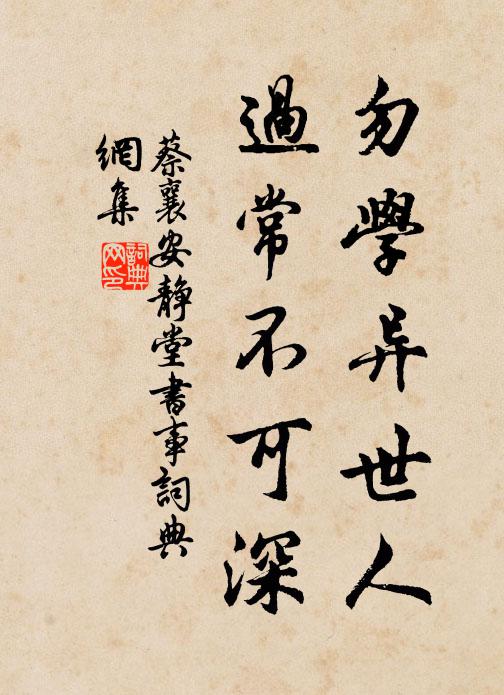 勿學异世人
過常不可深
蔡襄安靜堂書事詞典
網集
詞典網印